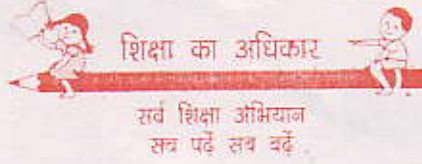 शिक्षा का अधिकार
सर्व शिक्षा अभियान
सब पढ़ें सब बढ़ें .